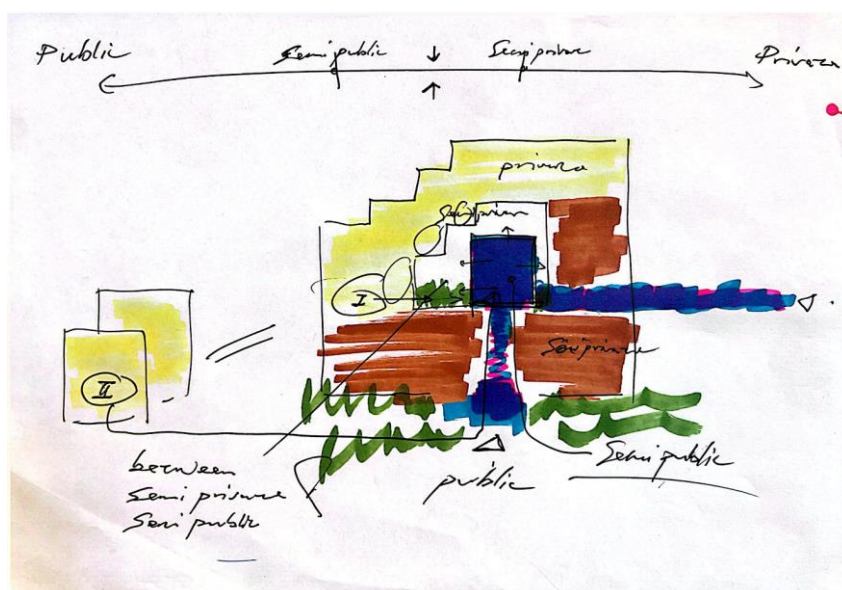 Public
Semi public
Semi private
Private
private
Semi privat
I
Semi private
II
between
Semi private
Semi public
public
Semi public